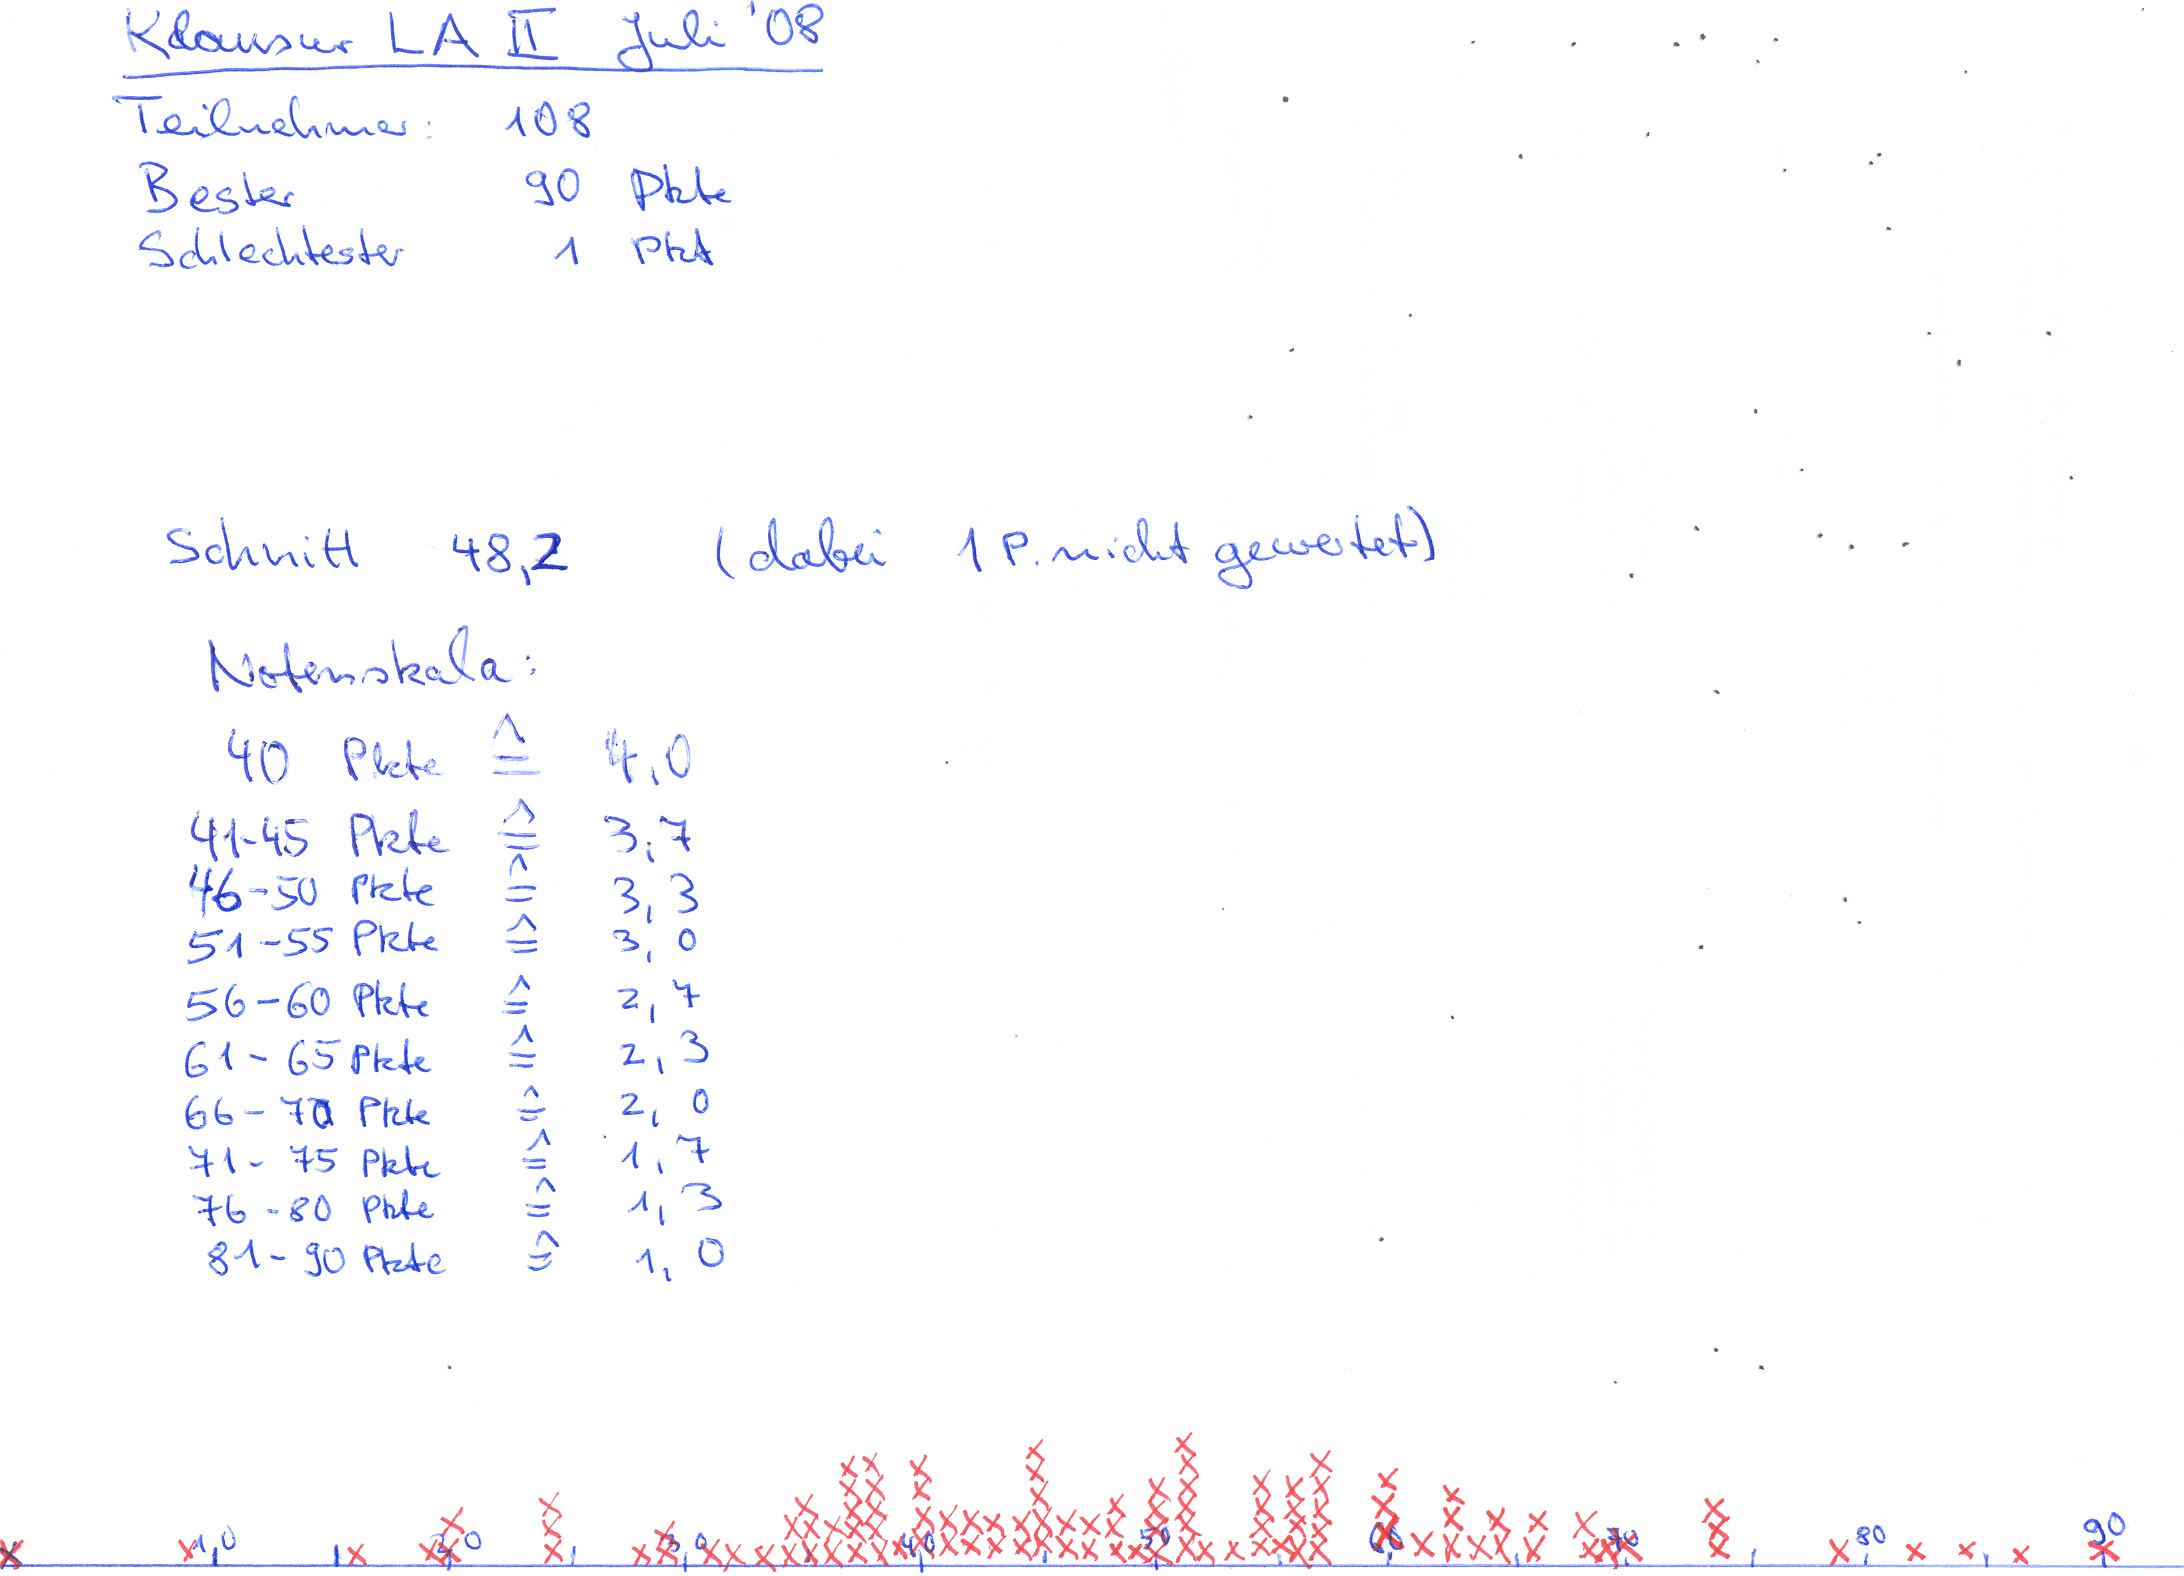 Klausur LA II Juli '08
Teilnehmer: 108
Bester 90 Pkte
Schlechtester 1 Pkt
Schnitt 48,2 (dabei 1 P. nicht gewertet)
Notenskala:
40 Pkte ≙ 4,0
41-45 Pkte ≙ 3,7
46-50 Pkte ≙ 3,3
51-55 Pkte ≙ 3,0
56-60 Pkte ≙ 2,7
61-65 Pkte ≙ 2,3
66-70 Pkte ≙ 2,0
71-75 Pkte ≙ 1,7
76-80 Pkte ≙ 1,3
81-90 Pkte ≙ 1,0
1 10 20 30 40 50 60 70 80 90